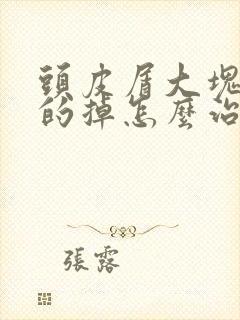 頭皮屑大塊
的掉怎麼治
張露